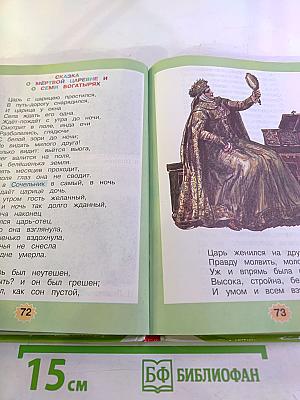 СКАЗКА
О МЁРТВОЙ ЦАРЕВНЕ И
О СЕМИ БОГАТЫРЯХ
Царь с царицею простился,
В путь-дорогу снарядился,
И царица у окна
Села ждать его одна.
Ждёт-пождёт с утра до ночи,
Смотрит в поле, инда очи
Разболелись, глядючи
С белой зори до ночи;
Не видать милого друга!
Только видит: вьётся вьюга,
Снег валится на поля,
Вся белёшенька земля.
девять месяцев проходит,
поля глаз она не сводит.
в Сочельник в самый, в ночь
даёт царице дочь.
утром гость желанный,
и ночь так долго жданный,
наконец
царь-отец.
она взглянула,
вздохнула,
не снесла
умерла.
был неутешен,
быть? и он был грешен;
как сон пустой,
72
Царь женился на
Правду молвить,
Уж и впрямь была
Высока, стройна,
И умом и всем
73
15 см
БФ БИБЛИОФАН